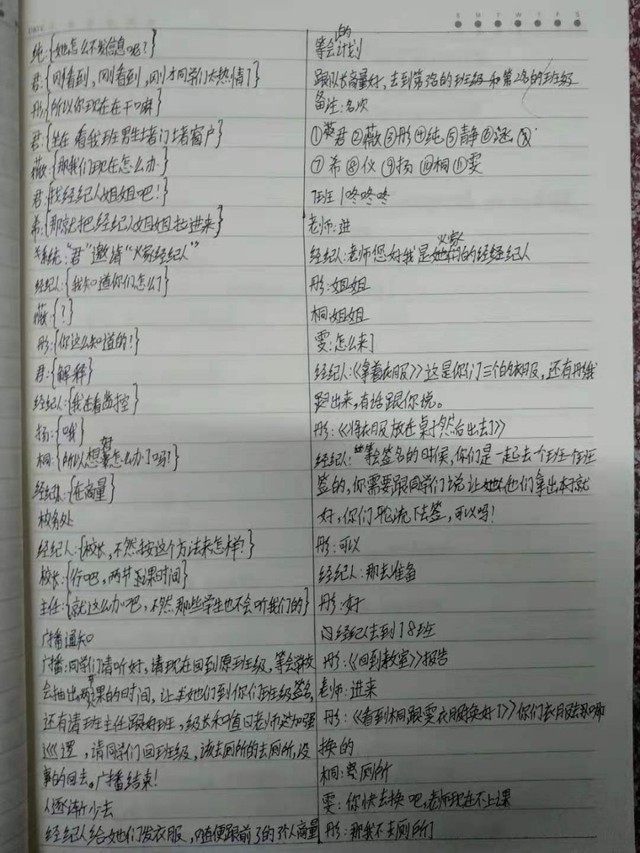 纯:{她怎么不发信息呢?}
君:{刚看到,刚看到,刚才同学们太热情了}
彤:{所以你现在在干嘛}
君:{坐在 看我班男生堵门堵窗户}
薇:{那我们现在怎么办}
君:{找经纪人姐姐吧!}
希:{那就把经纪人姐姐拉进来}
系统:“君”邀请“火家经纪人”
经纪人:{我知道你们怎么了}
薇:{?}
彤:{你这么知道的!}
君:{解释}
经纪人:{我在看监控}
扬:{哦}
桐:{所以想好怎么办了吗!}
经纪人:{在商量}
校务处
经纪人:{校长,不然按这个方法来怎样?}
校长:{行吧,两节下课时间}
主任:{就这么办吧,不然那些学生也不会听我们的}
广播通知
广播:同学们请听好,请现在回到原班级,等会学校
会抽出两课的时间,让她们到你们班级签名,
还有请班主任跟好班,级长和值日老师这加强
巡逻,请同学们回班级,该去厕所的去厕所,没
事的回去。广播结束!
人逐渐少去
经纪人给她们发衣服,顺便跟前3的3个人商量
等会的计划
跟队长商量好,去到第3的班级和第2的班级
备注:名次
①君②薇③彤④纯⑤静⑥涵
⑦希⑧仪⑨扬⑩桐⑪雯
1班 咚咚咚
老师:进
经纪人:老师您好我是火家人的经纪人
彤:姐姐
桐姐姐
雯:怎么来了
经纪人:《拿着衣服》这是你们三个的衣服,还有彤你
跟出来,有话跟你说。
彤:《将衣服放在桌上然后出去了》
经纪人:等会签名的时候,你们是一起去个班一个班
签的,你需要跟同学们说让他们拿出本子就
好,你们轮流下去签,可以吗!
彤:可以
经纪人:那去准备
彤:好
经纪人去到18班
彤:《回到教室》报告
老师:进来
彤:《看到桐跟雯衣服换好了》你们衣服去哪
换的
桐:厕所
雯:你快去换吧,老师现在不上课
彤:那我不去厕所了